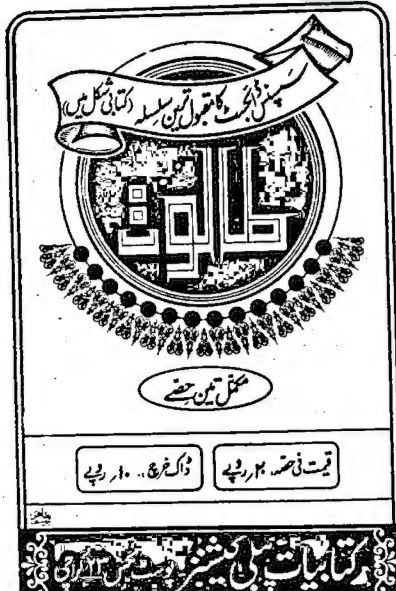 سپنس ڈائجسٹ کا مقبول ترین سلسلہ (کتابی شکل میں)
طالوت
مکمل تین حصے
قیمت فی حصہ ۲۰ روپے
ڈاک خرچ ۱۰ روپے
کتابیات پبلی کیشنز پوسٹ بکس ۲۳ کراچی